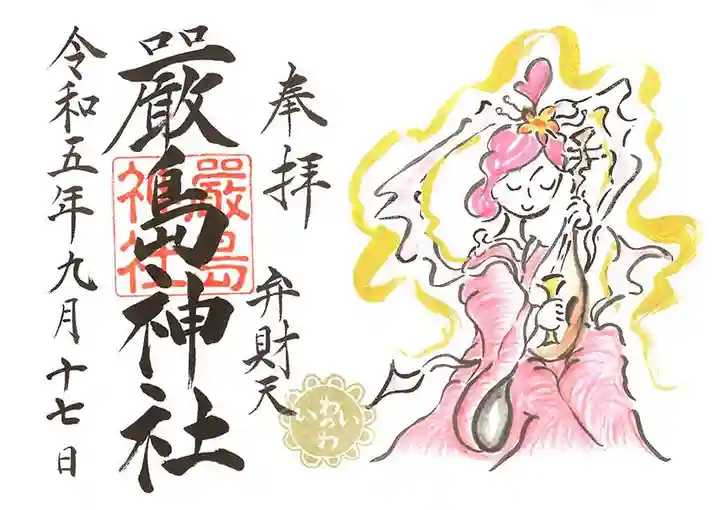 奉拝
弁財天
嚴島神社
嚴島
神社
令和五年九月十七日
わ
いのい
わ